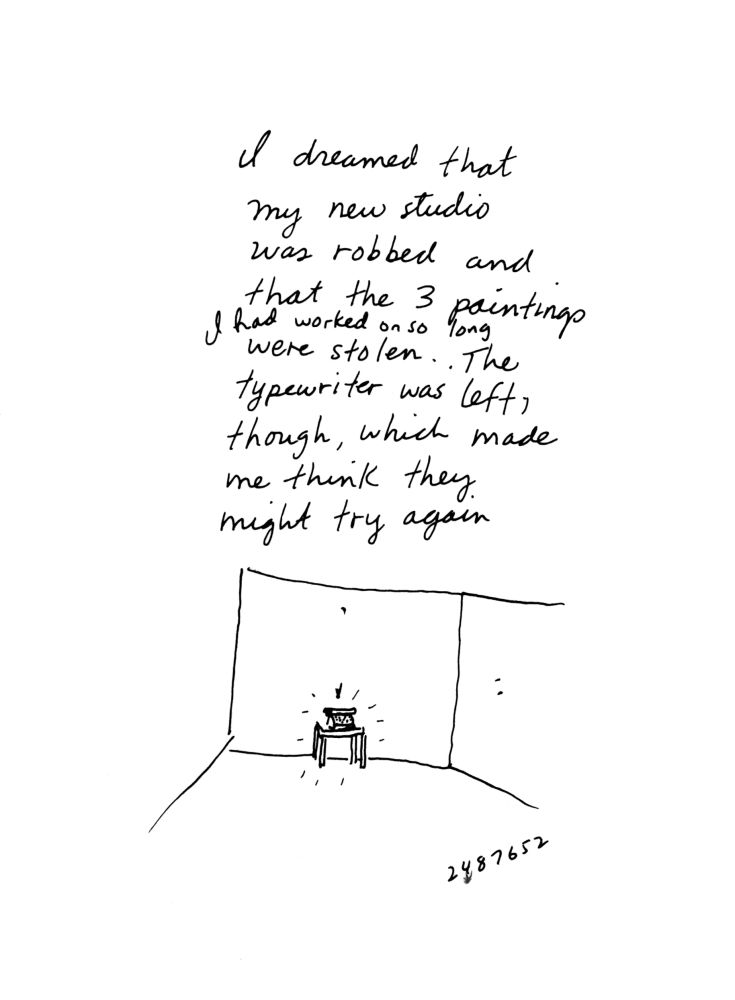 I dreamed that
my new studio
was robbed and
that the 3 paintings
I had worked on so long
were stolen.. The
typewriter was left,
though, which made
me think they
might try again
2487652